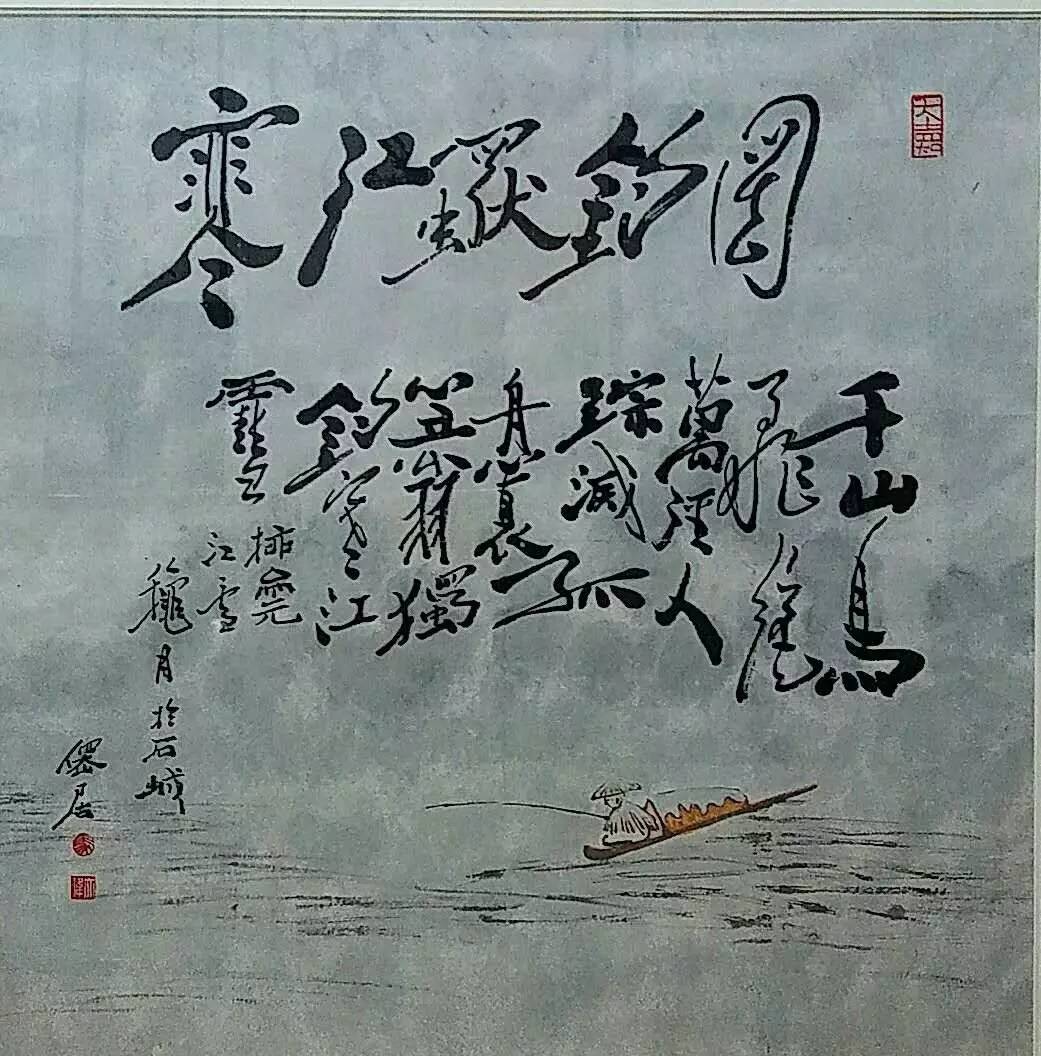 寒江獨釣圖
千山鳥
飛絕
萬徑人
踪滅孤
舟蓑
笠翁獨
釣寒江
雪
柳宗元
江雪
龝月於石城